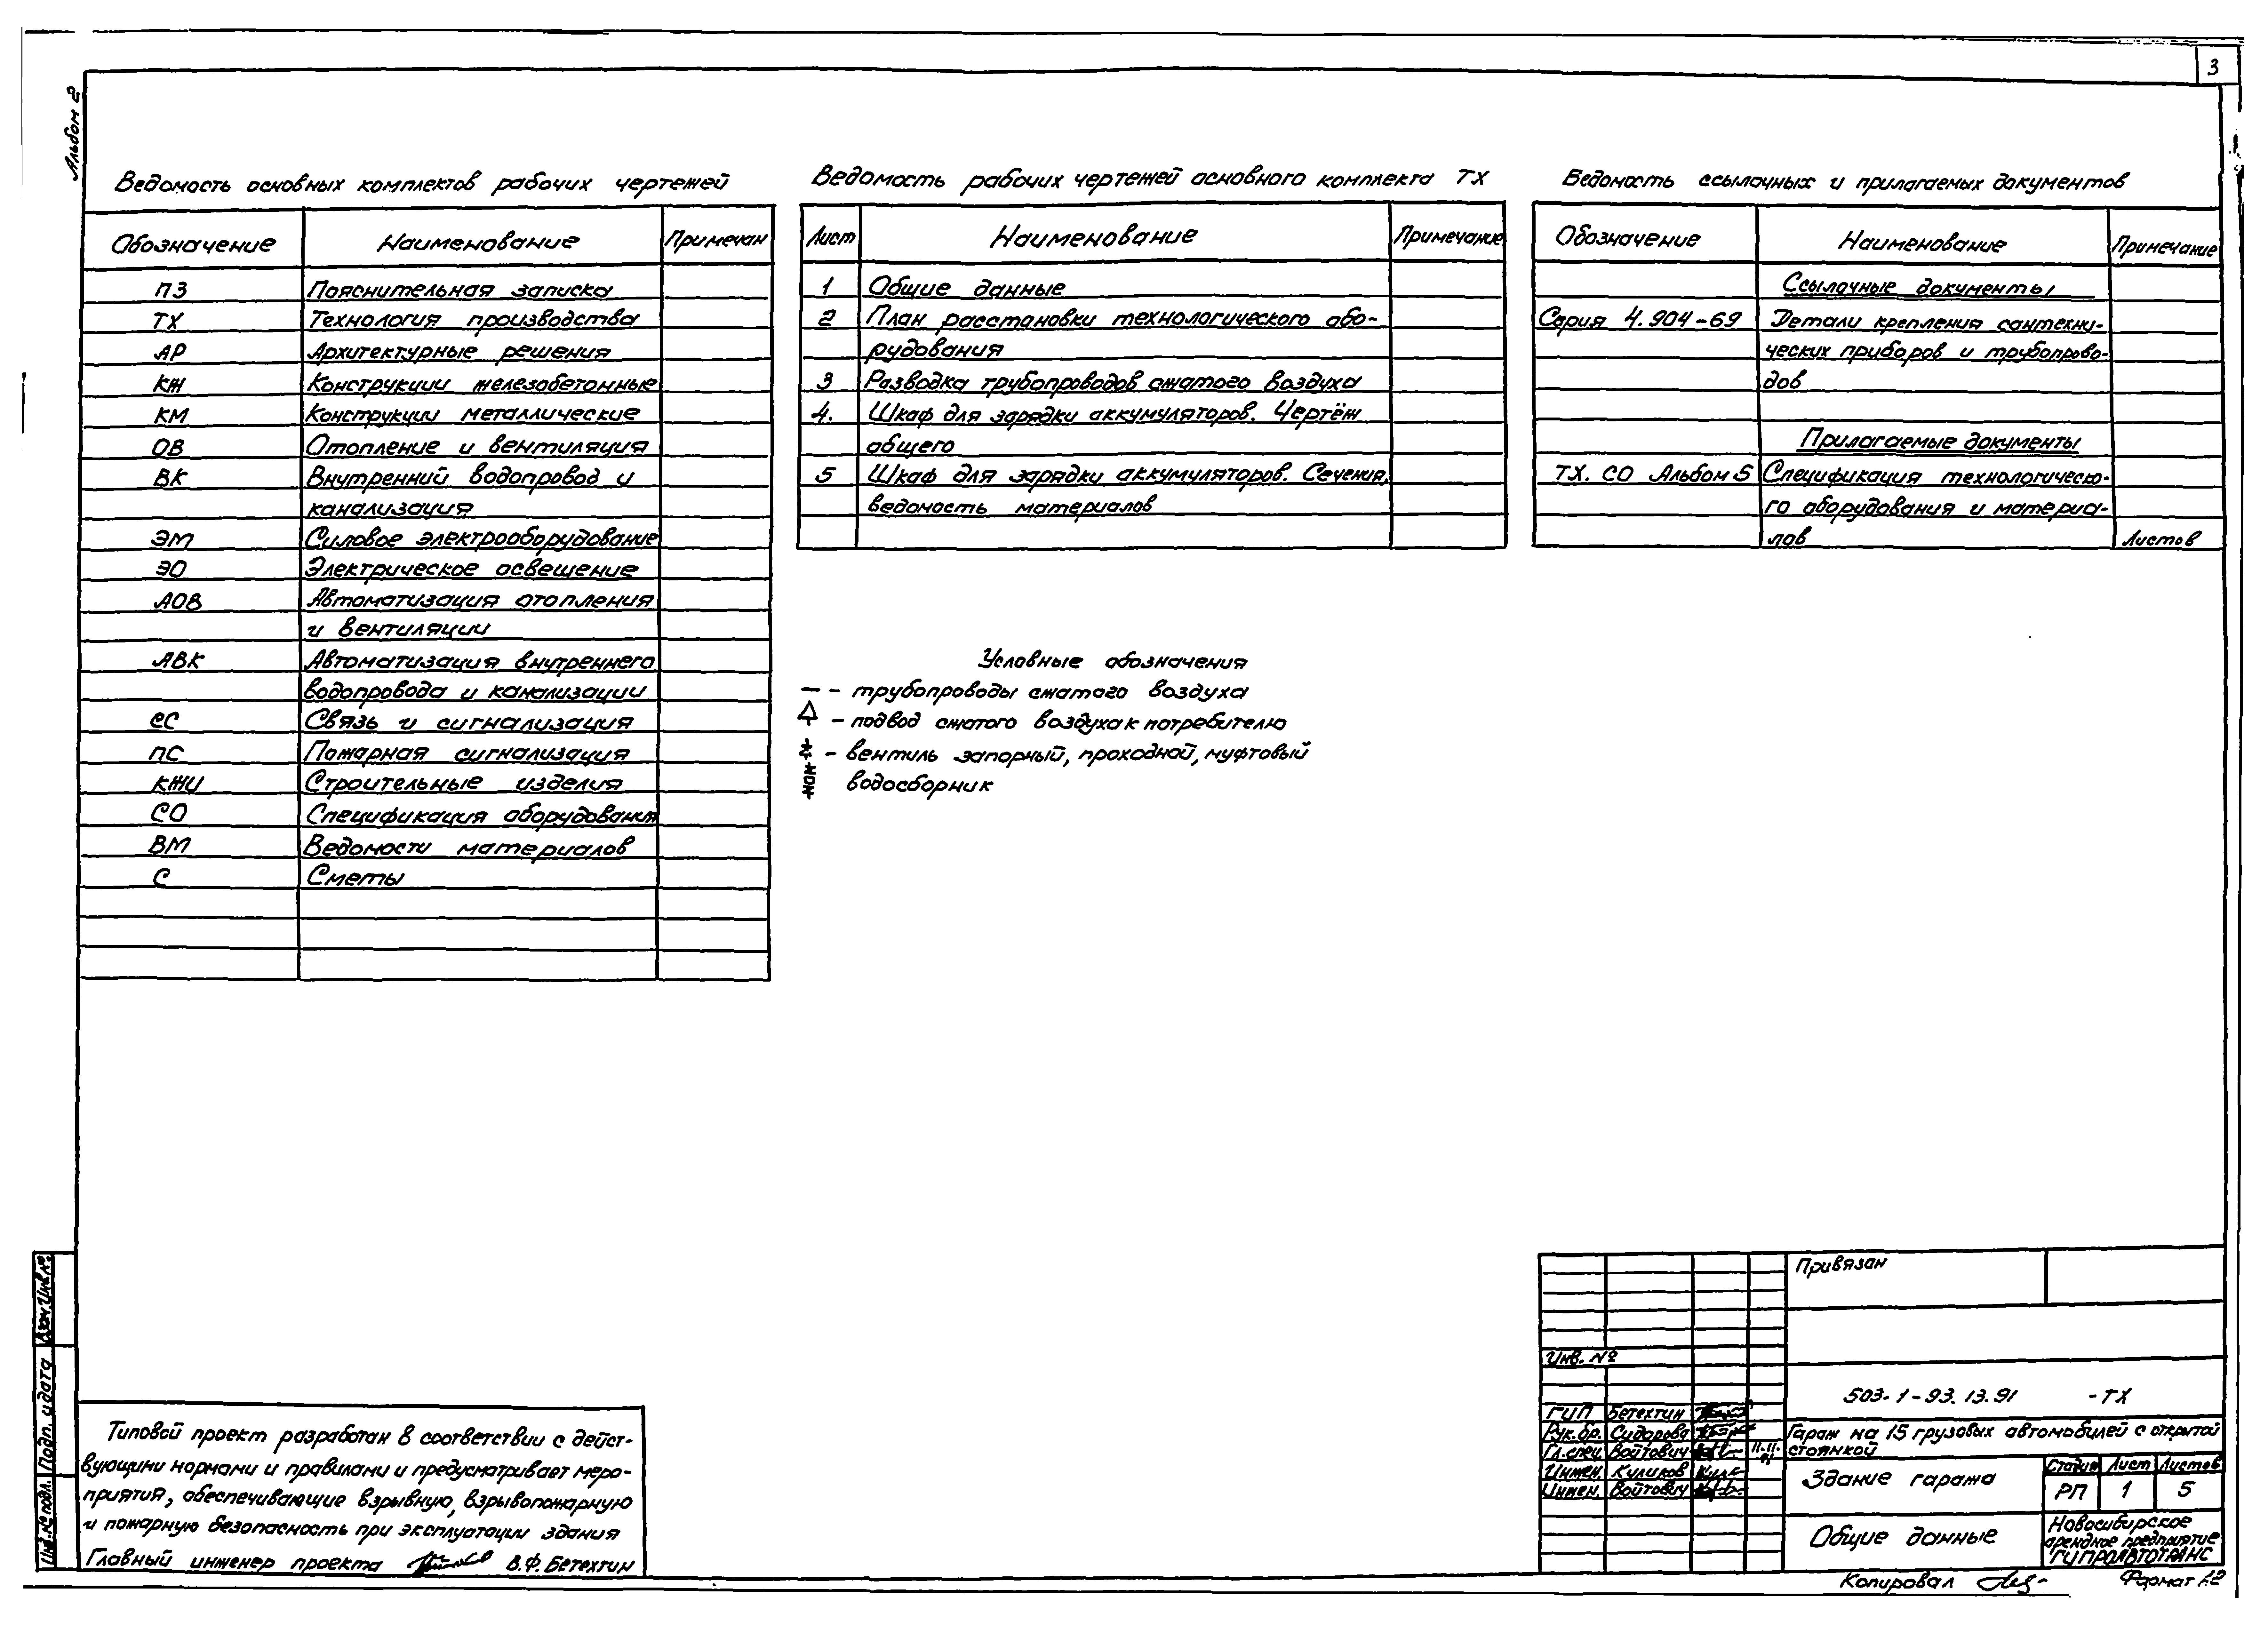 3
Альбом 2
Ведомость основных комплектов рабочих чертежей
Обозначение Наименование Примечан
ПЗ Пояснительная записка
ТХ Технология производства
АР Архитектурные решения
КЖ Конструкции железобетонные
КМ Конструкции металлические
ОВ Отопление и вентиляция
ВК Внутренний водопровод и
канализация
ЭМ Силовое электрооборудование
ЭО Электрическое освещение
АОВ Автоматизация отопления
и вентиляции
АВК Автоматизация внутреннего
водопровода и канализации
СС Связь и сигнализация
ПС Пожарная сигнализация
КЖИ Строительные изделия
СО Спецификация оборудования
ВМ Ведомости материалов
С Сметы
Ведомость рабочих чертежей основного комплекта ТХ
Лист Наименование Примечание
1 Общие данные
2 План расстановки технологического обо-
рудования
3 Разводка трубопроводов сжатого воздуха
4. Шкаф для зарядки аккумуляторов. Чертёж
общего
5 Шкаф для зарядки аккумуляторов. Сечения,
ведомость материалов
Ведомость ссылочных и прилагаемых документов
Обозначение Наименование Примечание
Ссылочные документы
Серия 4.904-69 Детали крепления сантехни-
ческих приборов и трубопрово-
дов
Прилагаемые документы
ТХ. СО Альбом 5 Спецификация технологическо-
го оборудования и материа-
лов Листов
Условные обозначения
— - трубопроводы сжатого воздуха
- подвод сжатого воздуха к потребителю
- вентиль запорный, проходной, муфтовый
водосборник
Взам. Инв. №
Подп. и дата
Инв. № подл.
Типовой проект разработан в соответствии с дейст-
вующими нормами и правилами и предусматривает меро-
приятия, обеспечивающие взрывную, взрывопожарную
и пожарную безопасность при эксплуатации здания
Главный инженер проекта В.Ф. Бетехтин
Привязан
Инв. №
503-1-93.13.91 -ТХ
ГИП Бетехтин
Рук.бр. Сидорова
Гл.спец Войтович 11.11.91
Инжен. Куликов
Инжен. Войтович
Гараж на 15 грузовых автомобилей с открытой
стоянкой
Здание гаража
Стадия Лист Листов
РП 1 5
Общие данные
Новосибирское
арендное предприятие
ГИПРОАВТОТРАНС
Копировал
Формат А2